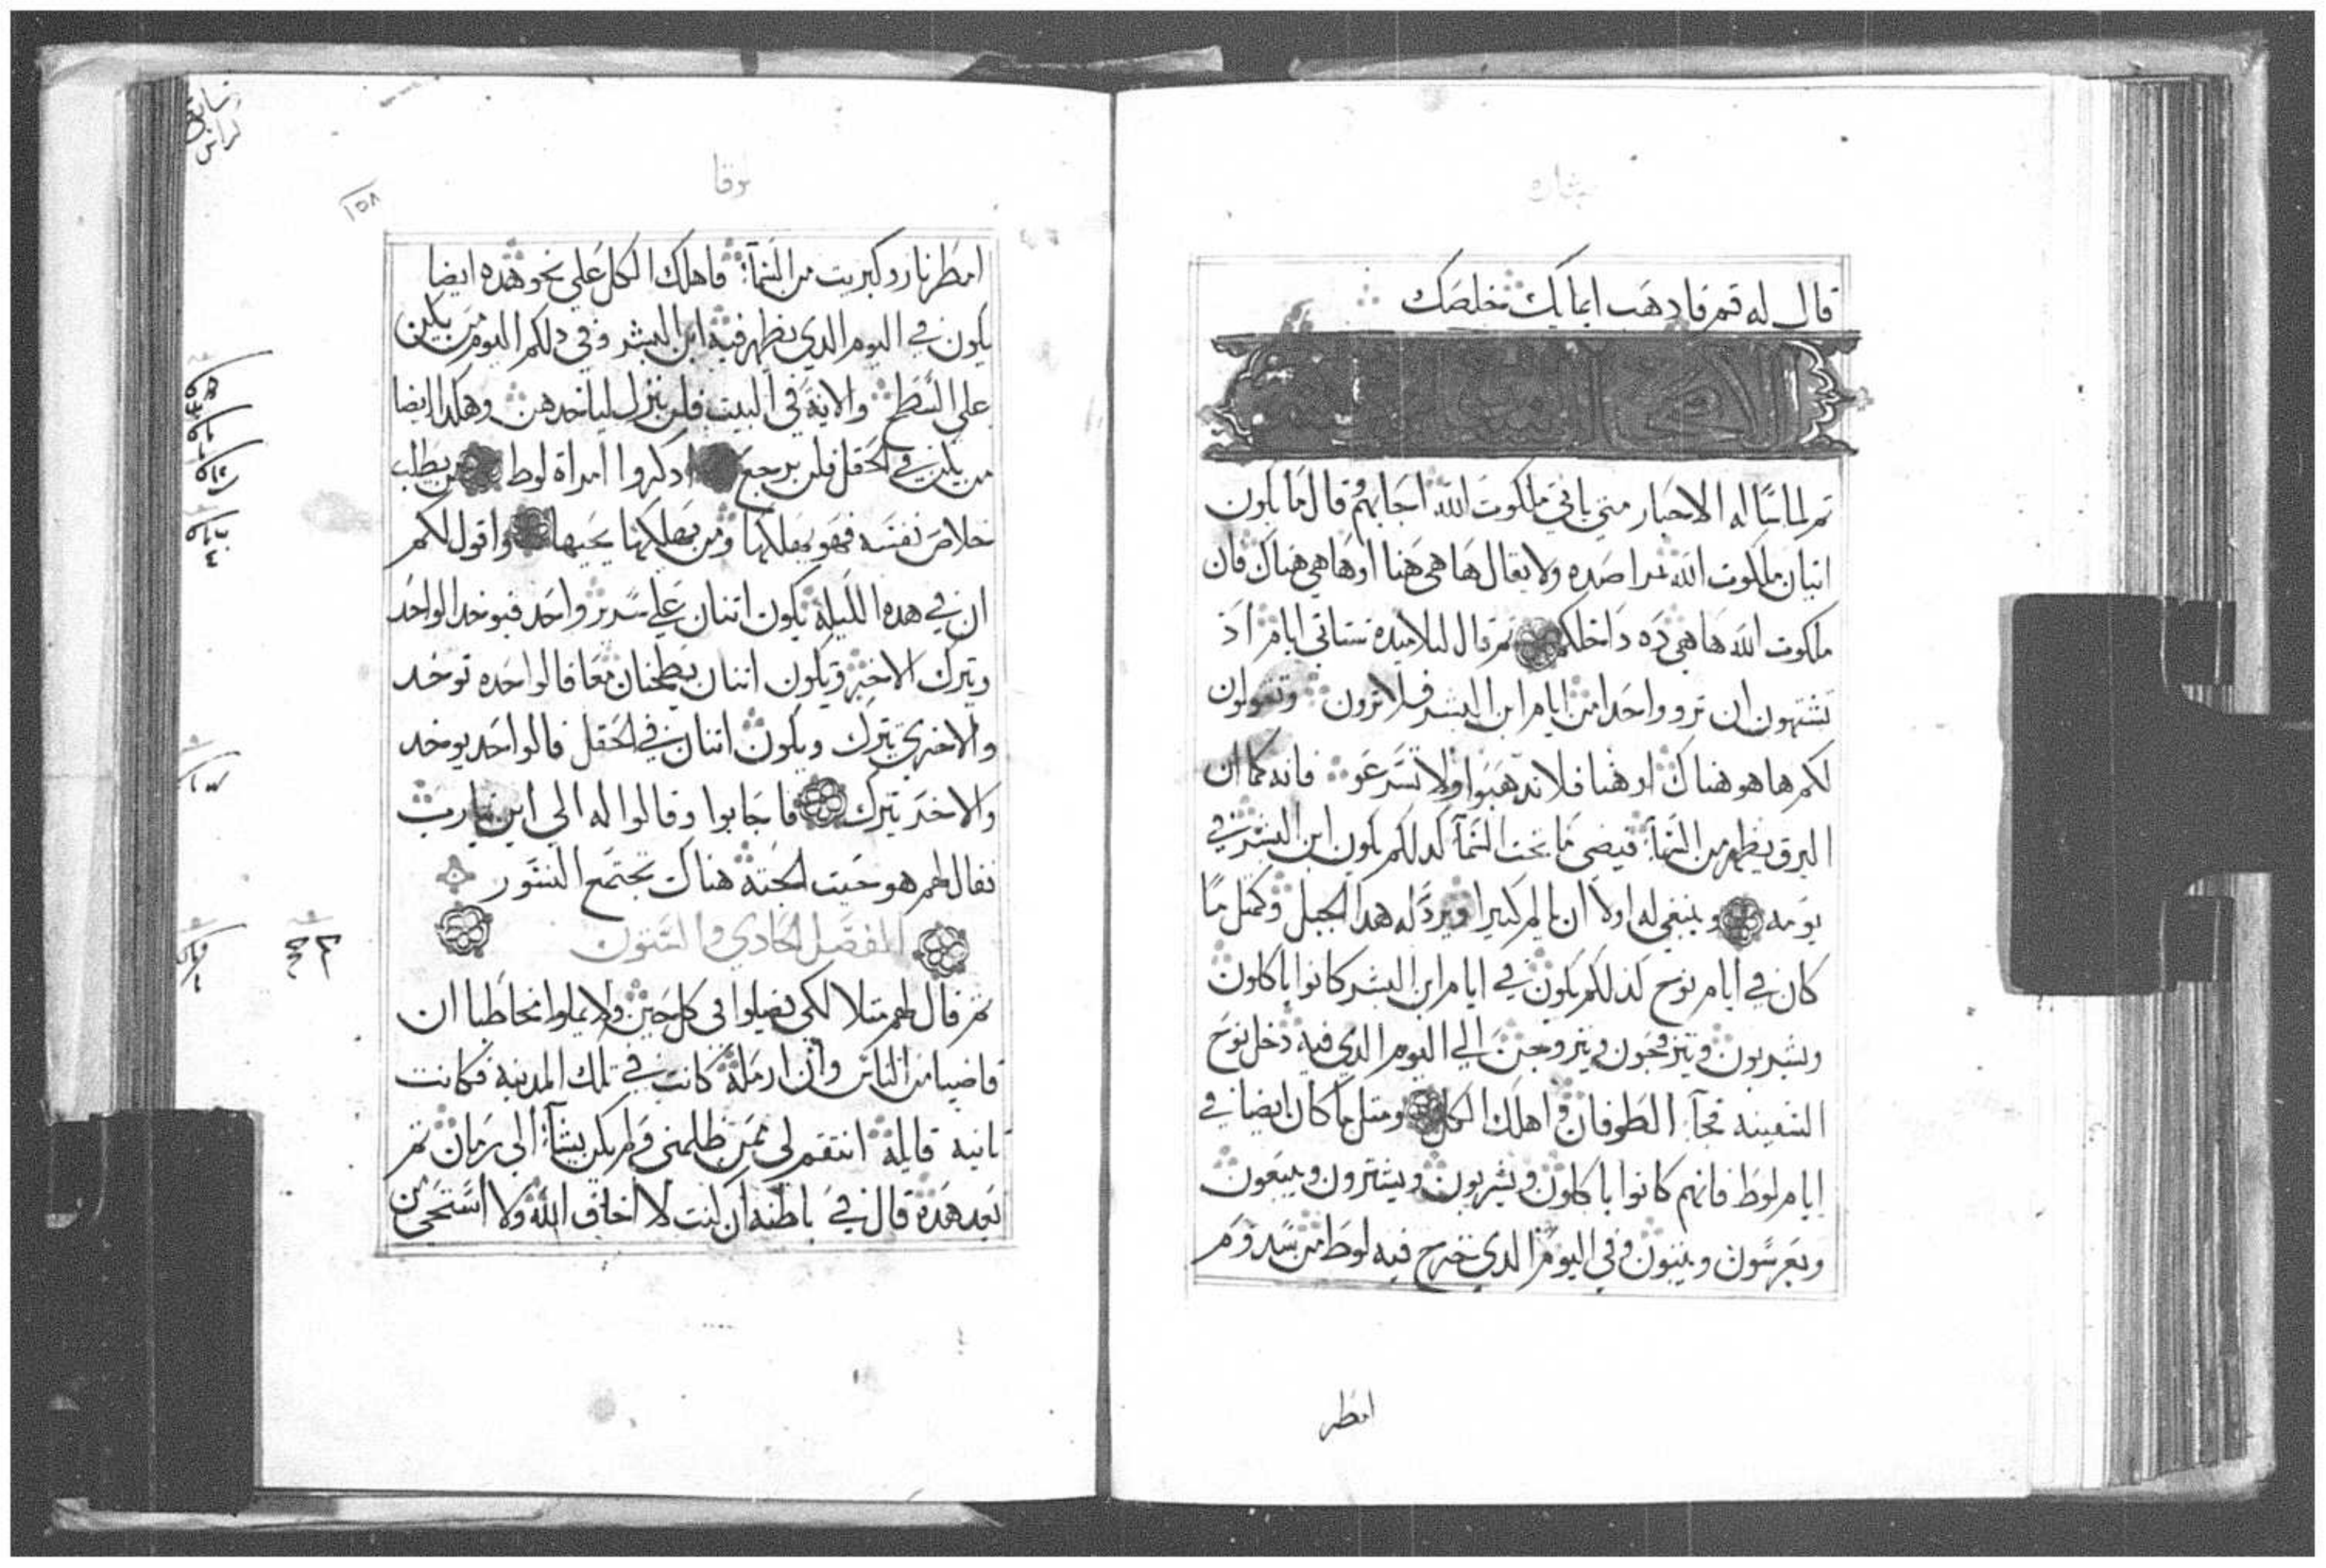 بشاره
قال له قم فادهب ايمانك مخلصك
تم لما ساله الاحبار متي ياتي ملكوت الله اجابهم وقال ما يكون
اتيان ملكوت الله بمراصده ولا يقال ها هي هنا او ها هي هناك فان
ملكوت الله ها هي ده داخلكم تم قال لتلاميده ستاتي ايام اذ
تشتهون ان تروو واحدا من ايام ابن البشر فلا ترون وتقولون
لكم ها هو هناك او هنا فلا تدهبوا ولا تسرعو فانه كما ان
البرق يظهر من السمآ فيضي ما تحت السمآ كدلكم يكون ابن البشر في
يومه وينبغي له اولا ان يالم كتيرا ويردله هدا الجيل وكمتل ما
كان في ايام نوح كذلكم يكون في ايام ابن البشر كانوا ياكلون
ويشربون ويتزوجون ويتزوجن الي اليوم الدي فيه دخل نوح
السفينه فجآ الطوفان واهلك الكل ومتل ما كان ايضا في
ايام لوط فانهم كانوا ياكلون ويشربون ويشترون ويبيعون
ويغرسون ويبنون وفي اليوم الدي خرج فيه لوط من سدوم
امطر
لوقا
١٥٨
امطر نار وكبريت من السمآ فاهلك الكل علي نحو هده ايضا
يكون في اليوم الدي يظهر فيه ابن البشر وفي دلكم اليوم من يكن
علي السطح والانيه في البيت فلن ينزل لياخدهن وهكدا ايضا
من يكن في الحقل فلن يرجع ادكروا امراة لوط من يطلب
خلاص نفسه فهو يهلكها ومن يهلكها يحييها واقول لكم
ان في هده الليله يكون اتنان علي سرير واحد فيوخد الواحد
ويترك الاخر ويكون اتنان يطحنان معا فالواحده توخد
والاخري تترك ويكون اتنان في الحقل فالواحد يوخد
والاخر يترك فاجابوا وقالوا له الي اين يا رب
فقال لهم هو حيت الجته هناك تجتمع النسور
المفصل الحادي والستون
تم قال لهم متلا لكي يصلوا في كل حين ولا يملوا مخاطبا ان
قاضيا من الناس وان ارمله كانت في تلك المدينه فكانت
تاتيه قايله انتقم لي ممن ظلمني ولم يكن يشآ الي زمان تم
بعد هده قال في باطنه ان كنت لا اخاف الله ولا استحي من